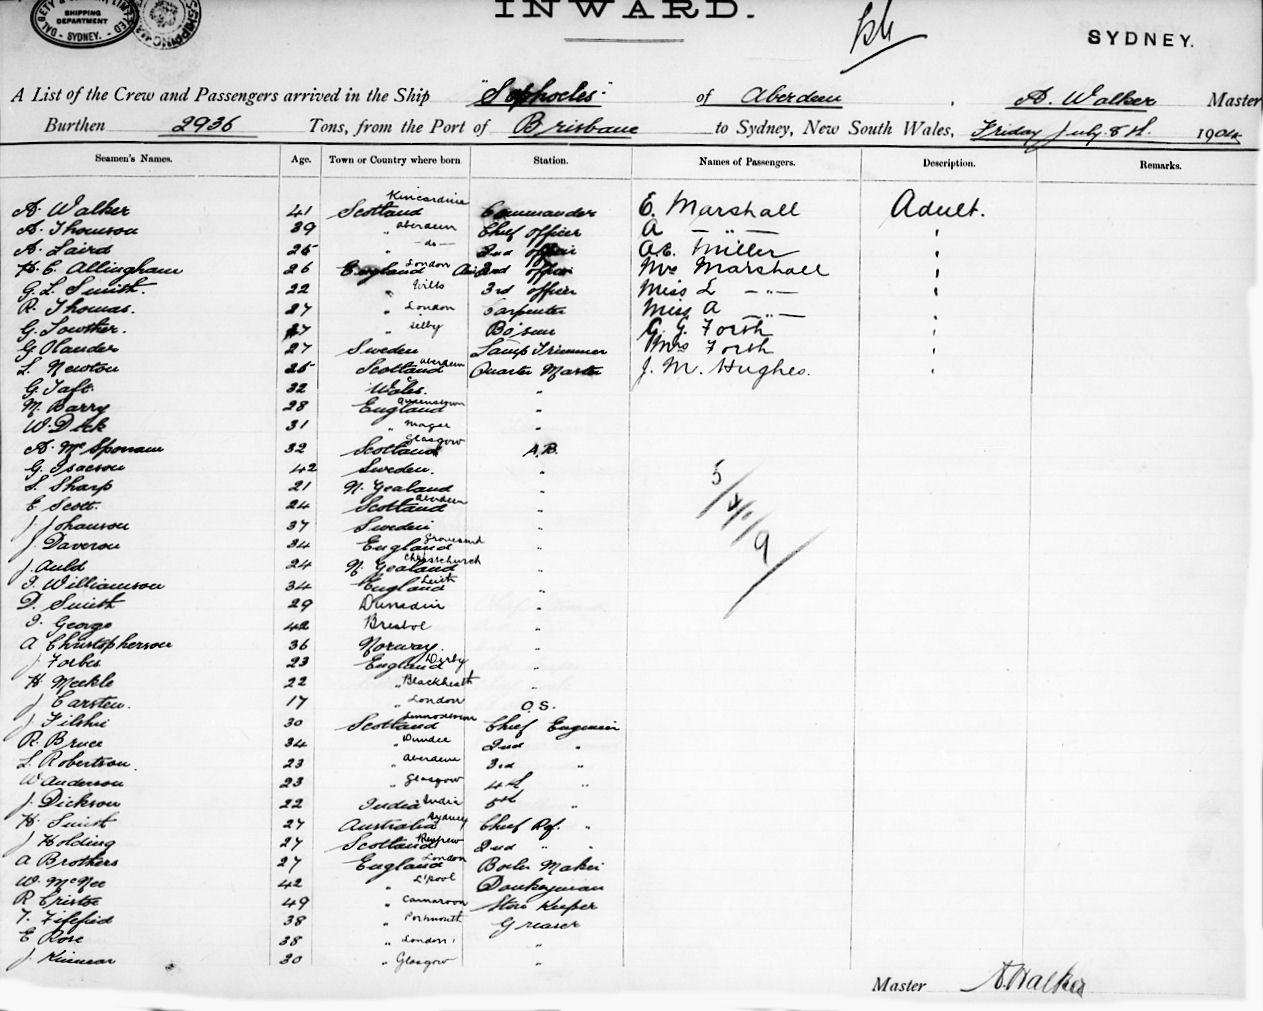 INWARD.
DALGETY & COMPANY LIMITED
SHIPPING
DEPARTMENT
SYDNEY.
SYDNEY.
A List of the Crew and Passengers arrived in the Ship "Sophocles" of Aberdeen, A. Walker Master
Burthen 2936 Tons, from the Port of Brisbane to Sydney, New South Wales, Friday July 8th 1904
Seamen's Names. Age. Town or Country where born Station. Names of Passengers. Description. Remarks.
A. Walker 41 Scotland Kincardine Commander E. Marshall Adult.
A. Thomson 39 " Aberdeen Chief officer A —"— "
A. Laird 25 " —do— 2nd officer A.E. Miller "
H. E. Allingham 26 England London 2nd officer Mrs Marshall "
G. L. Smith. 22 " Wilts 3rd officer Miss L —"— "
R. Thomas. 27 " London Carpenter Miss A —"— "
G. Lowther. 47 " Selby Bo'sun G. G. Forth "
G Olander 27 Sweden Lamp Trimmer Mrs Forth "
L. Newton 25 Scotland Aberdeen Quarter Master J. M. Hughes. "
G. Taft. 32 Wales. "
M. Barry 28 England Queenstown "
W. Dick 31 " "
A. Mc 32 Scotland Glasgow A.B.
G. Isacson 42 Sweden. "
L. Sharp 21 N. Zealand "
E Scott. 24 Scotland Aberdeen "
J. Johanson 37 Sweden "
J. Daverou 34 England Gravesend "
J. Auld 24 N. Zealand Christchurch "
T. Williamson 34 England Leith "
D. Smith 29 Dunedin "
T. George 42 Bristol "
A Christopherson 36 Norway. "
J. Forbes 23 England Derby "
H. Meekle 22 " Blackheath "
J Carsten. 17 " London O.S.
J Filshie 30 Scotland Chief Engineer
R. Bruce 34 " Dundee 2nd "
L. Robertson. 23 " Aberdeen 3rd "
W Anderson 23 " Glasgow 4th "
J. Dickson 22 India India 5th "
H. Smith 27 Australia Sydney Chief Ref. "
J Holding 27 Scotland Renfrew 2nd " "
A Brothers 27 England London Boiler Maker
W. McNee 42 " L'pool Donkeyman
R Cristoe 49 " Store Keeper
T. Fifefield 38 " Portsmouth Greaser
E Rose 38 " London. "
J. Kinnear 30 " Glasgow "
Master A. Walker